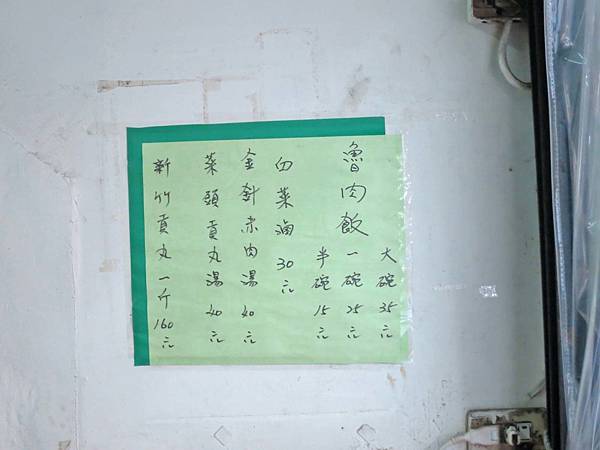 魯肉飯
大碗35元
一碗25元
半碗15元
白菜滷30元
金針赤肉湯40元
菜頭貢丸湯40元
新竹貢丸一斤160元